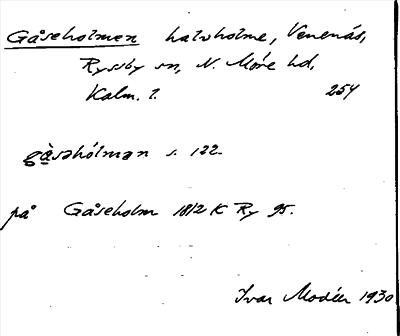 Gåseholmen halvholme, Venenäs,
Ryssby sn, N. Möre hd,
Kalm. l. 254
gåsəhólmən s. 122.
på Gåseholm 1812 K Ry 95.
Ivar Modéer 1930